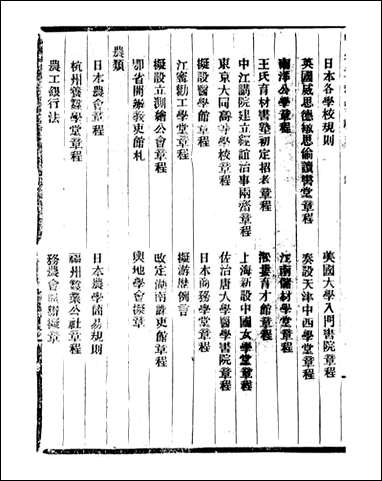 日本各學校規則　英國大學入門書院章程
英國威思德敏思偷讀書堂章程　奏設天津中西學堂章程
南洋公學章程　江南儲材學堂章程
王氏育材書塾初定招考章程　崧雲育才館章程
中江講院建立經誼治事兩齋章程　上海新設中國女學堂章程
東京大同高等學校章程　佐治唐大學醫學書院章程
擬設醫學館章程　日本商務學堂章程
江寧勸工學堂章程　擬游歷例言
擬設立測繪公會章程　改定湖南課吏館章程
鄂省開辦教吏館札　輿地學會擬章
農類
日本農會章程　日本農學簡易規則
杭州養蠶學堂章程　福州蠶業公社章程
農工銀行法　務農會擬章